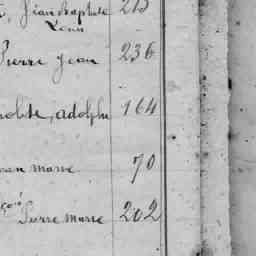 Jean Baptiste 213
Louis
Pierre Jean 236
polite, adolphe 164
ean marie 70
çois
Pierre marie 202